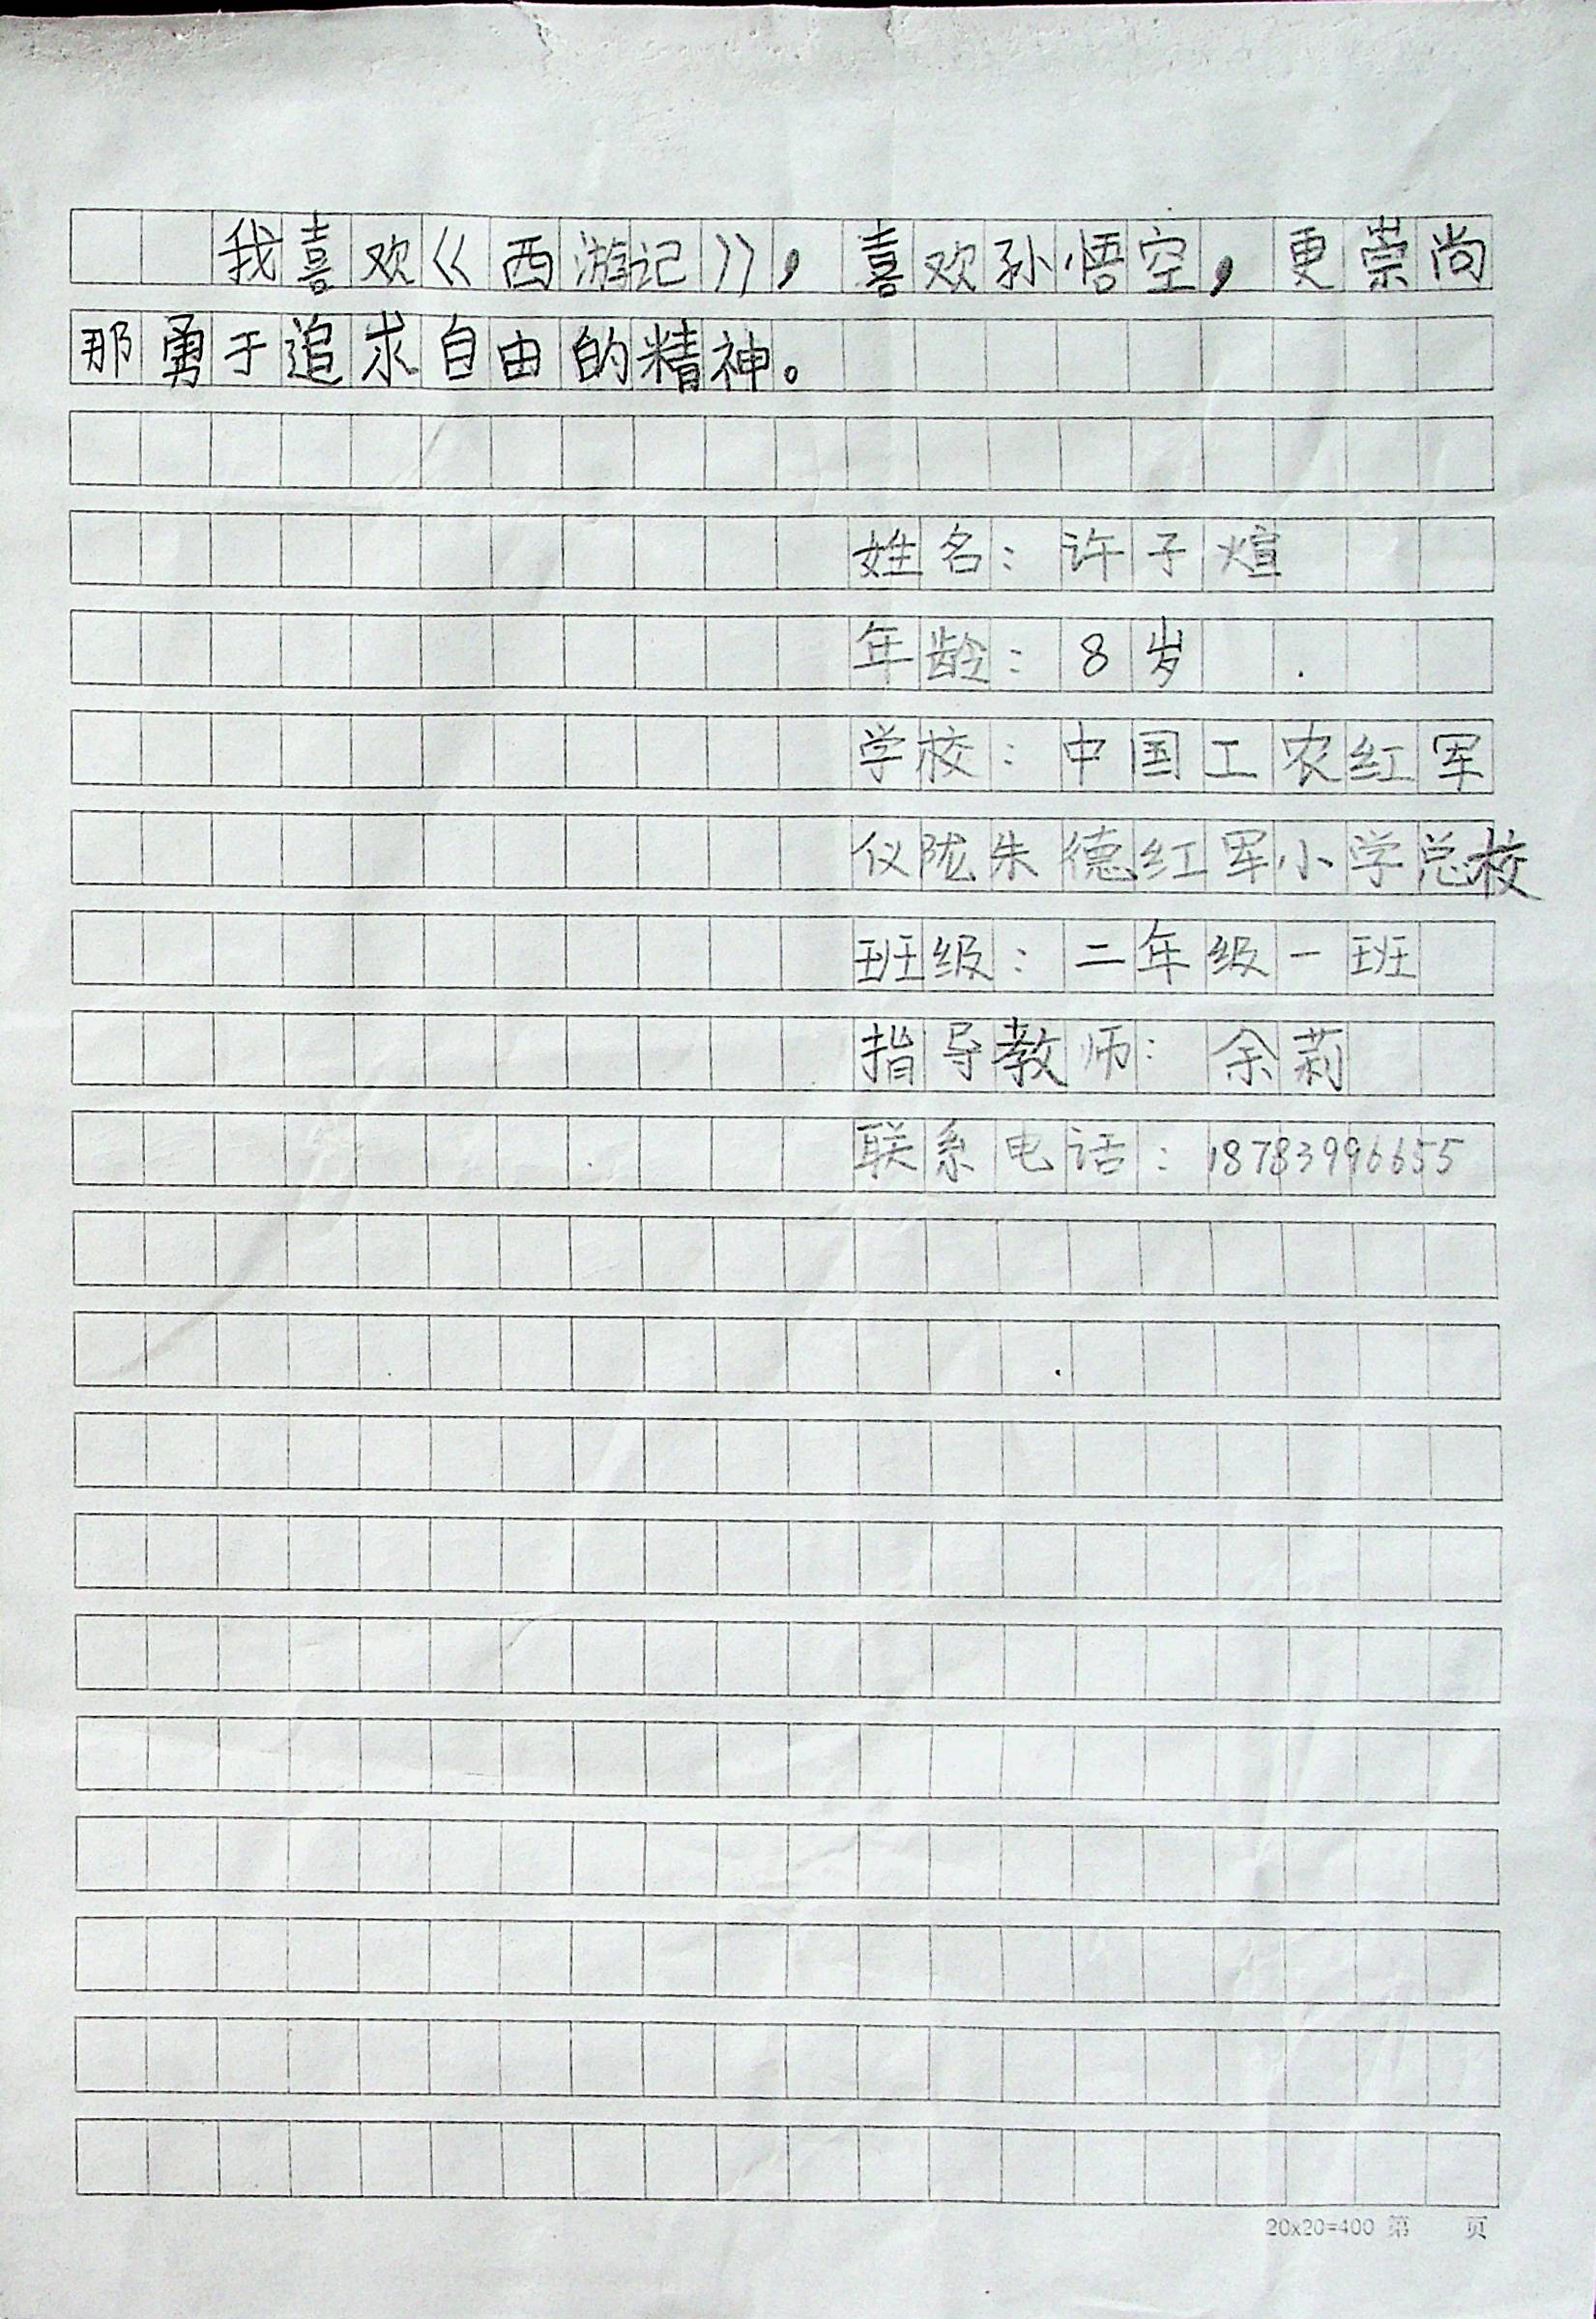 我喜欢《西游记》，喜欢孙悟空，更崇尚
那勇于追求自由的精神。
姓名：许子煊
年龄：8岁
学校：中国工农红军
仪陇朱德红军小学总校
班级：二年级一班
指导教师：余莉
联系电话：18783996655
20x20=400 第 页